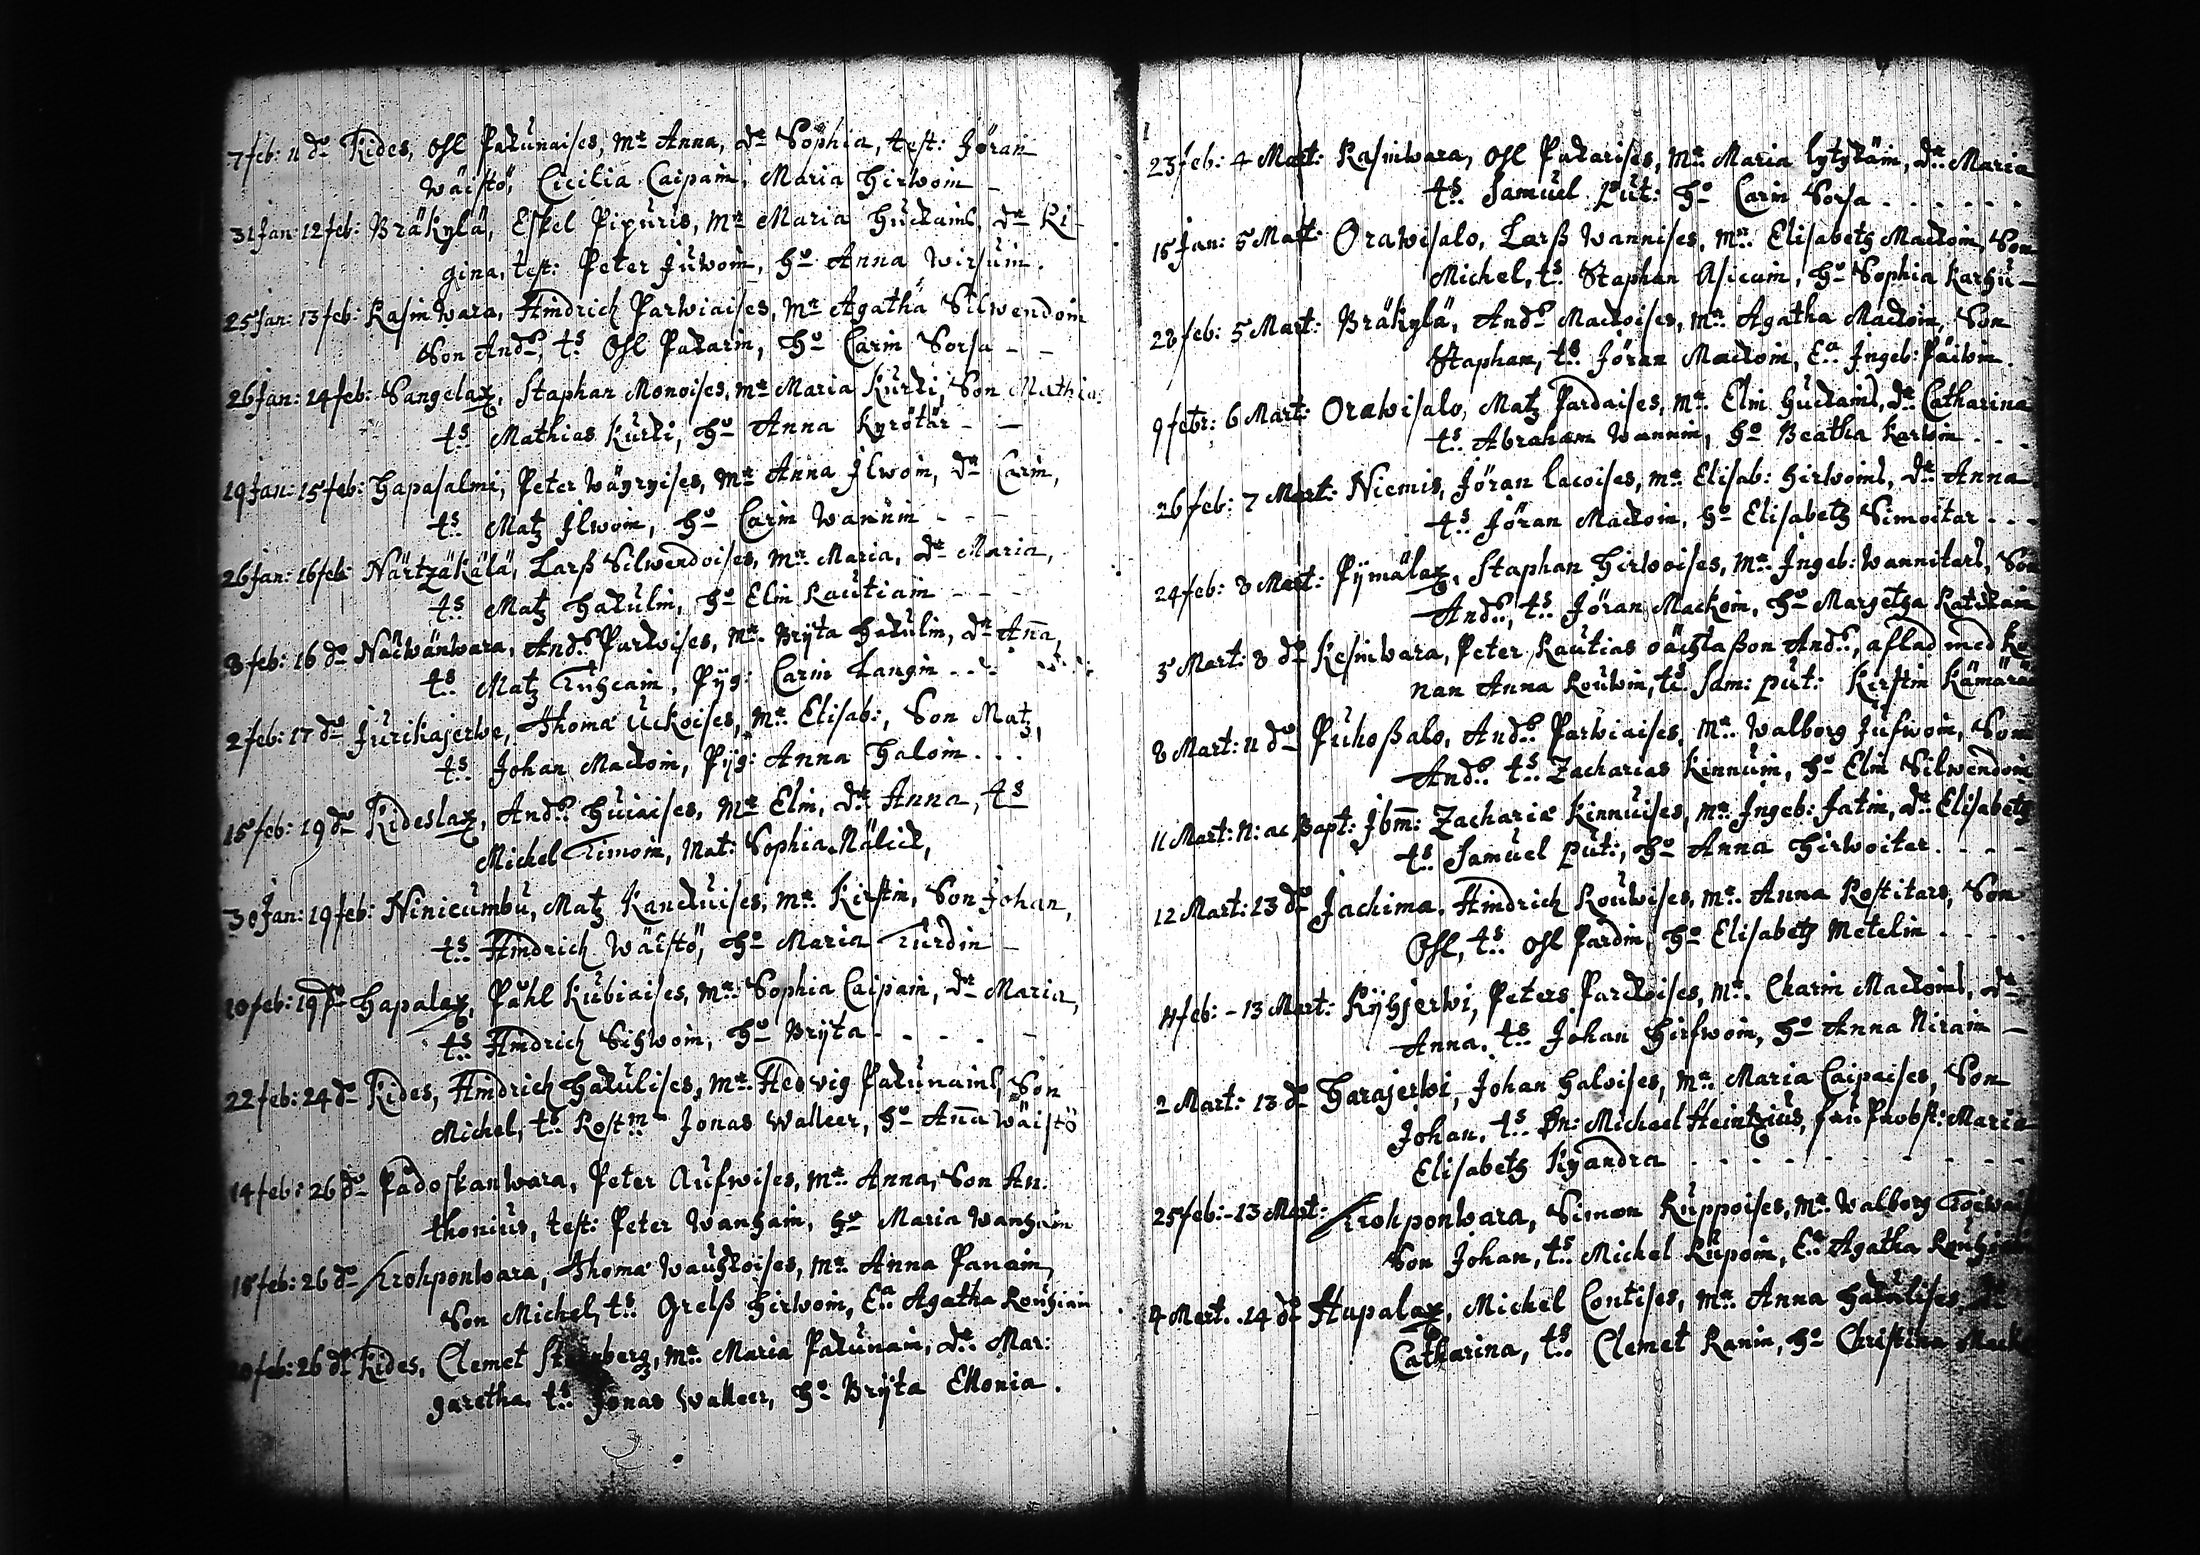 7 feb: 11 do Kides, Ohl Pakunaises, mr Anna, dr Sophia, test: Jöran
Wäistö, Cicilia Caipain, Maria Hirwoin -
31 Jan: 12 feb: Bräkylä, Eskel Pipuris, mr Maria Huckains, dr Ri-
gina, test: Peter Juwoin, ho Anna Wirsuin.
25 Jan: 13 feb: Rasinwara, Hindrich Parwiaises, mr Agatha Silwendoin
Son Andrs, ts Ohl Pakarin, ho Carin Sorsa - -
26 Jan: 14 feb: Sangelax, Staphan Monoises, mr Maria Kurki, Son Mathia:
ts Mathias Kurki, ho Anna Kyrötär - -
19 Jan: 15 feb: Hapasalmi, Peter Wäyryises, mr Anna Ilwoin, dr Carin,
ts Matz Ilwoin, ho Carin Wanuin - - -
26 Jan: 16 feb: Närtzäkälä, Larß Silwendoises, mr Maria, dr Maria,
ts Matz Hakulin, ho Elin Rautiain - - -
8 feb: 16 do Näcwänwara, Andrs Purkoises, mr Brÿta Hakulin, dr Ana,
ts Matz Tuhcain, Pÿg: Carin Langin . . .
2 feb: 17 do Jurikajerwe, Thoma Uckoises, mr Elisab:, Son Matz,
ts Johan Mackoin, Pÿg: Anna Haloin . . .
15 feb: 19 do Kideslax, Andrs Huiaises, mr Elin, dr Anna, ts
Michel Timoin, Mat: Sophia Nälick,
30 Jan: 19 feb: Ninicumbu, Matz Kanckuises, mr Kirstin, Son Johan,
ts Hindrich Wäistö, ho Maria Turdin -
10 feb: 19 do Hapalax, Påhl Kubiaises, mr Sophia Caipain, dr Maria,
ts Hindrich Sihwoin, ho Brÿta - - - -
22 feb: 24 do Kides, Hindrich Hakulises, mr Hedvig Pakunains, Son
Michel, ts Rostm Jonas Walleer, ho Ana Wäistö
14 feb: 26 do Padoskanwara, Peter Aufwises, mr Anna, Son An:
thonius, test: Peter Wanhain, ho Maria Wanhain
18 feb: 26 do Trohponwara, Thoma Wauhkoises, mr Anna Panain,
Son Michel, ts Grelß Hirwoin, Ea Agatha Rouhiain
feb: 26 do Kides, Clemet mr Maria Pakunain, dr Mar:
garetha, ts Jonas Walleer, ho Brÿta Ellonia.
23 feb: 4 Mart: Rasinwara, Ohl Pakarises, mr Maria Lytykäin, dr Maria
ts Samuel Put: ho Carin Sorsa - - - - -
15 Jan: 5 Mart: Orawisalo, Larß Wannises, mr Elisabetz Mackoin, Son
Michel, ts Staphan Asicain, ho Sophia Karhu -
28 feb: 5 Mart: Bräkylä, Andrs Mackoises, mr Agatha Mackoin, Son
Staphan, ts Jöran Mackoin, Ea Ingeb: Päiwin.
9 febr: 6 Mart: Orawisalo, Matz Pardaises, mr Elin Huckains, dr Catharina
ts Abraham Wannin, ho Beatha Karwin - - -
26 feb: 7 Mart: Niemis, Jöran Lacoises, mr Elisab: Hirwoins, dr Anna
ts Jöran Mackoin, ho Elisabetz Simoitar - - -
24 feb: 8 Mart: Pÿmälax, Staphan Hirwoises, mr Ingeb: Wannitars, Son
Andrs, ts Jöran Mackoin, ho Margetha Ratskain
5 Mart: 8 do Kesinwara, Peter Rautias oächtaßon Andrs, aflad med Ko
nan Anna Rouwin, ts Sam: Put: Kirstin Kämärä
8 Mart: 11 do Puhoßalo, Andrs Parwiaises, mr Walborg Jufwoin, Son
Andrs, ts Zacharias Kinnuin, ho Elin Silwendoin
11 Mart: N: ac Bapt: Ibm: Zachariæ Kinnuises, mr Ingeb: Jatin, dr Elisabetz
ts Samuel Put:, ho Anna Hirwoiter. - - -
12 Mart: 13 do Jachima, Hindrich Rouwises, mr Anna Rostitars, Son
Ohl, ts Ohl Pardin, ho Elisabetz Metelin - - - -
4 feb: - 13 Mart: Rÿhjerwi, Peters Parckoises, mr Charin Mackoins, dr
Anna, ts Johan Hirfwoin, ho Anna Nirain -
2 Mart: 13 do Harajerwi, Johan Haloises, mr Maria Caipaises, Son
Johan, ts Dn: Michael Heintzius, fau Probst: Maria
Elisabetz Kyandra - - - - - - -
25 feb: - 13 Mart: Trohponwara, Simon Ruppoises, mr Walborg
Son Johan, ts Michel Rupoin, Ea Agatha
4 Mart. 14 do Hapalax, Michel Contises, mr Anna Hakulises, dr
Catharina, ts Clemet Ranin, ho Christina